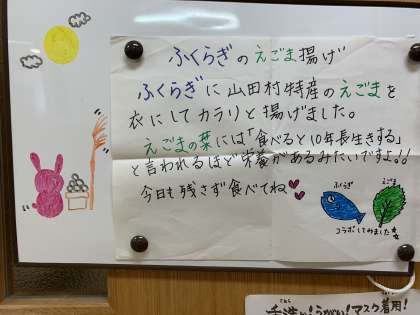 ふくらぎのえごま揚げ
ふくらぎに山田村特産のえごまを
衣にしてカラリと揚げました。
えごまの葉には「食べると10年長生きする」
と言われるほど栄養があるみたいですよ!!
今日も残さず食べてね
ふくらぎ
えごま
コラボしてみました
手洗い!うがい!マスク着用!